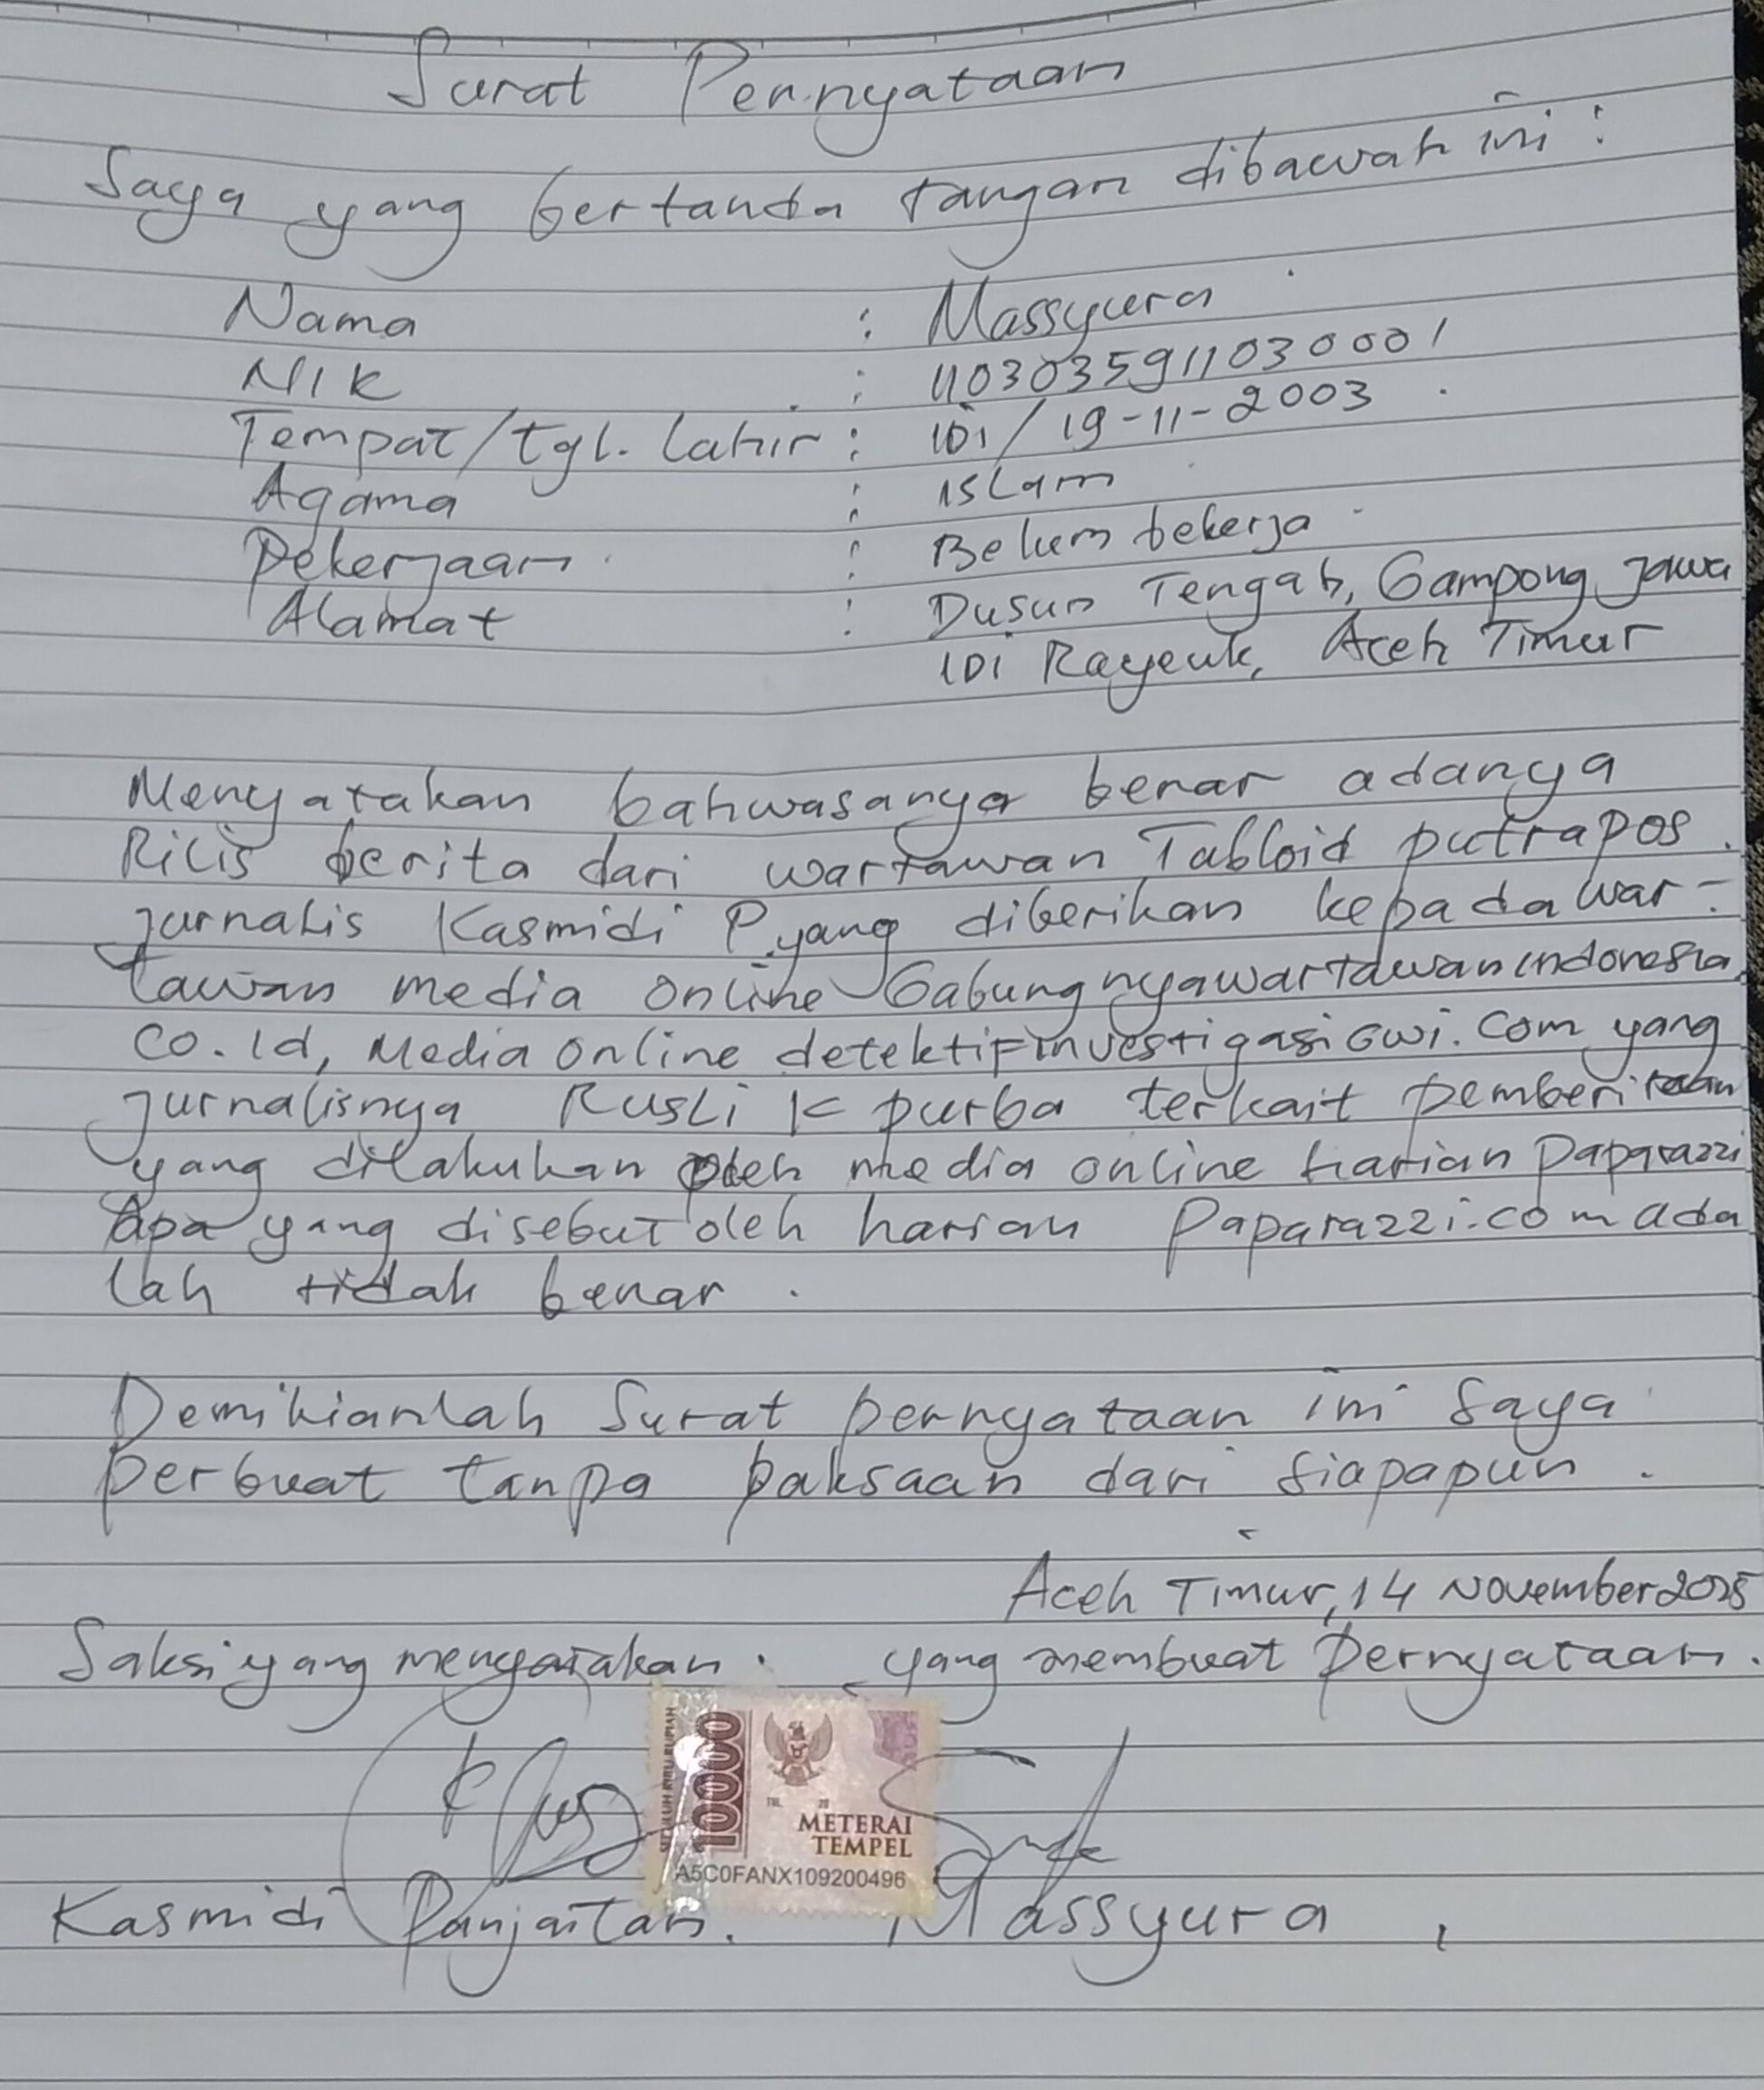 Surat Pernyataan
Saya yang bertanda tangan dibawah ini :
Nama : Massyura
NIK : 1103035911030001
Tempat/tgl. Lahir : IDi / 19-11-2003
Agama : Islam
Pekerjaan : Belum bekerja
Alamat : Dusun Tengah, Gampong Jawa
IDi Rayeuk, Aceh Timur
Menyatakan bahwasanya benar adanya
Rilis berita dari wartawan Tabloid putrapos.
jurnalis Kasmidi P. yang diberikan kepada war-
tawan media online Gabungnyawartawanindonesia.
co.id, Media online detektifinvestigasiGwi.com yang
jurnalisnya Rusli K purba terkait pemberitaan
yang dilakukan oleh media online harian Paparazzi
Apa yang disebut oleh harian Paparazzi.com ada
lah tidak benar.
Demikianlah Surat pernyataan ini Saya
perbuat tanpa paksaan dari siapapun.
Aceh Timur, 14 November 2025
Saksi yang mengatakan. yang membuat Pernyataan.
SEPULUH RIBU RUPIAH
10000
TGL. 20
METERAI
TEMPEL
A5C0FANX109200496
Kasmidi Panjaitan. Massyura